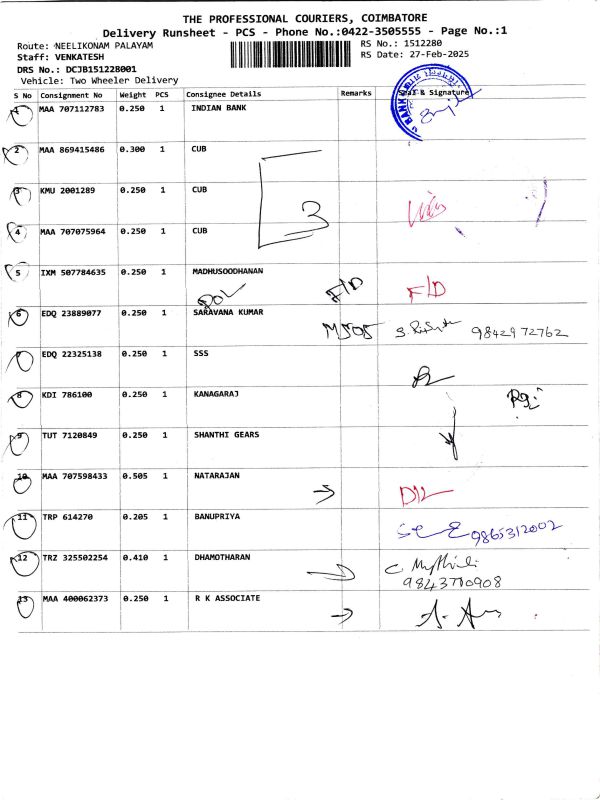 THE PROFESSIONAL COURIERS, COIMBATORE
Delivery Runsheet - PCS - Phone No.:0422-3505555 - Page No.:1
Route: NEELIKONAM PALAYAM
RS No.: 1512280
Staff: VENKATESH
RS Date: 27-Feb-2025
DRS No.: DCJB151228001
Vehicle: Two Wheeler Delivery
S No Consignment No Weight PCS Consignee Details Remarks & Signature
1 MAA 707112783 0.250 1 INDIAN BANK
2 MAA 869415486 0.300 1 CUB
3 KMU 2001289 0.250 1 CUB
3
4 MAA 707075964 0.250 1 CUB
5 IXM 507784635 0.250 1 MADHUSOODHANAN
F/D F/D
6 EDQ 23889077 0.250 1 SARAVANA KUMAR
9842972762
7 EDQ 22325138 0.250 1 SSS
8 KDI 786100 0.250 1 KANAGARAJ
9 TUT 7120849 0.250 1 SHANTHI GEARS
10 MAA 707598433 0.505 1 NATARAJAN
D/L
11 TRP 614270 0.205 1 BANUPRIYA
9865312002
12 TRZ 325502254 0.410 1 DHAMOTHARAN
9843710908
13 MAA 400062373 0.250 1 R K ASSOCIATE